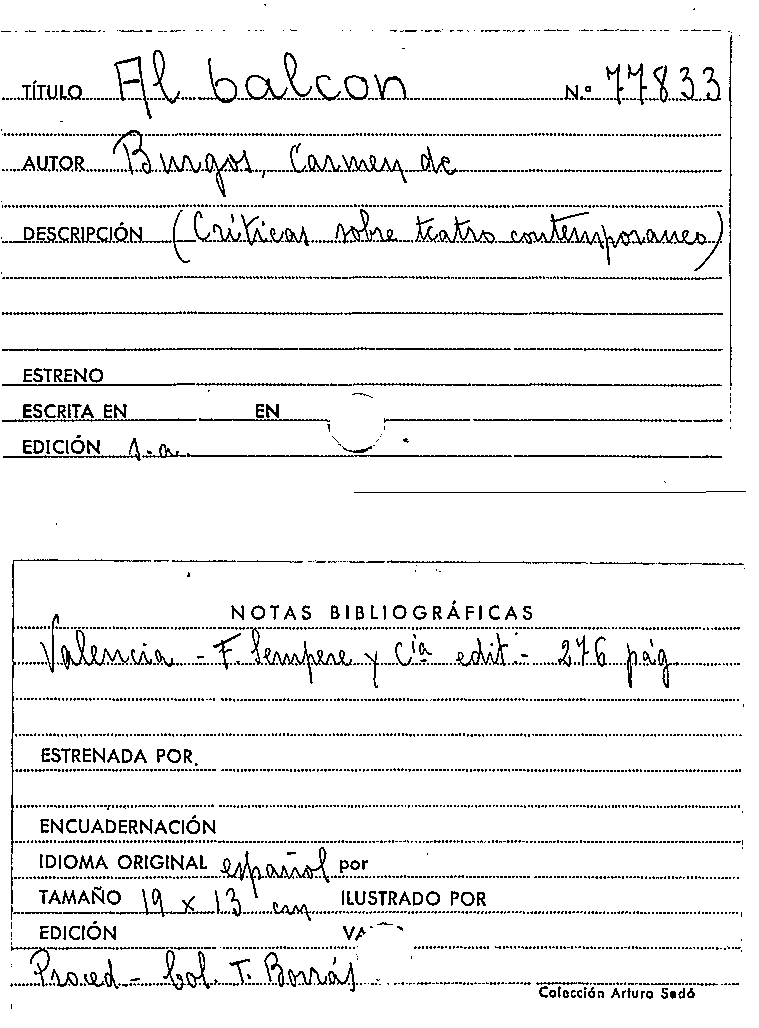 TÍTULO Al balcon N.º 77833
AUTOR Burgos, Carmen de
DESCRIPCIÓN (Críticas sobre teatro contemporaneo)
ESTRENO
ESCRITA EN EN
EDICIÓN s.a.
NOTAS BIBLIOGRÁFICAS
Valencia - F. Sempere y Cía edit.- 276 pág
ESTRENADA POR.
ENCUADERNACIÓN
IDIOMA ORIGINAL español por
TAMAÑO 19 x 13 cm ILUSTRADO POR
EDICIÓN
Proced - Col. T. Borrás
Colección Arturo Sedó